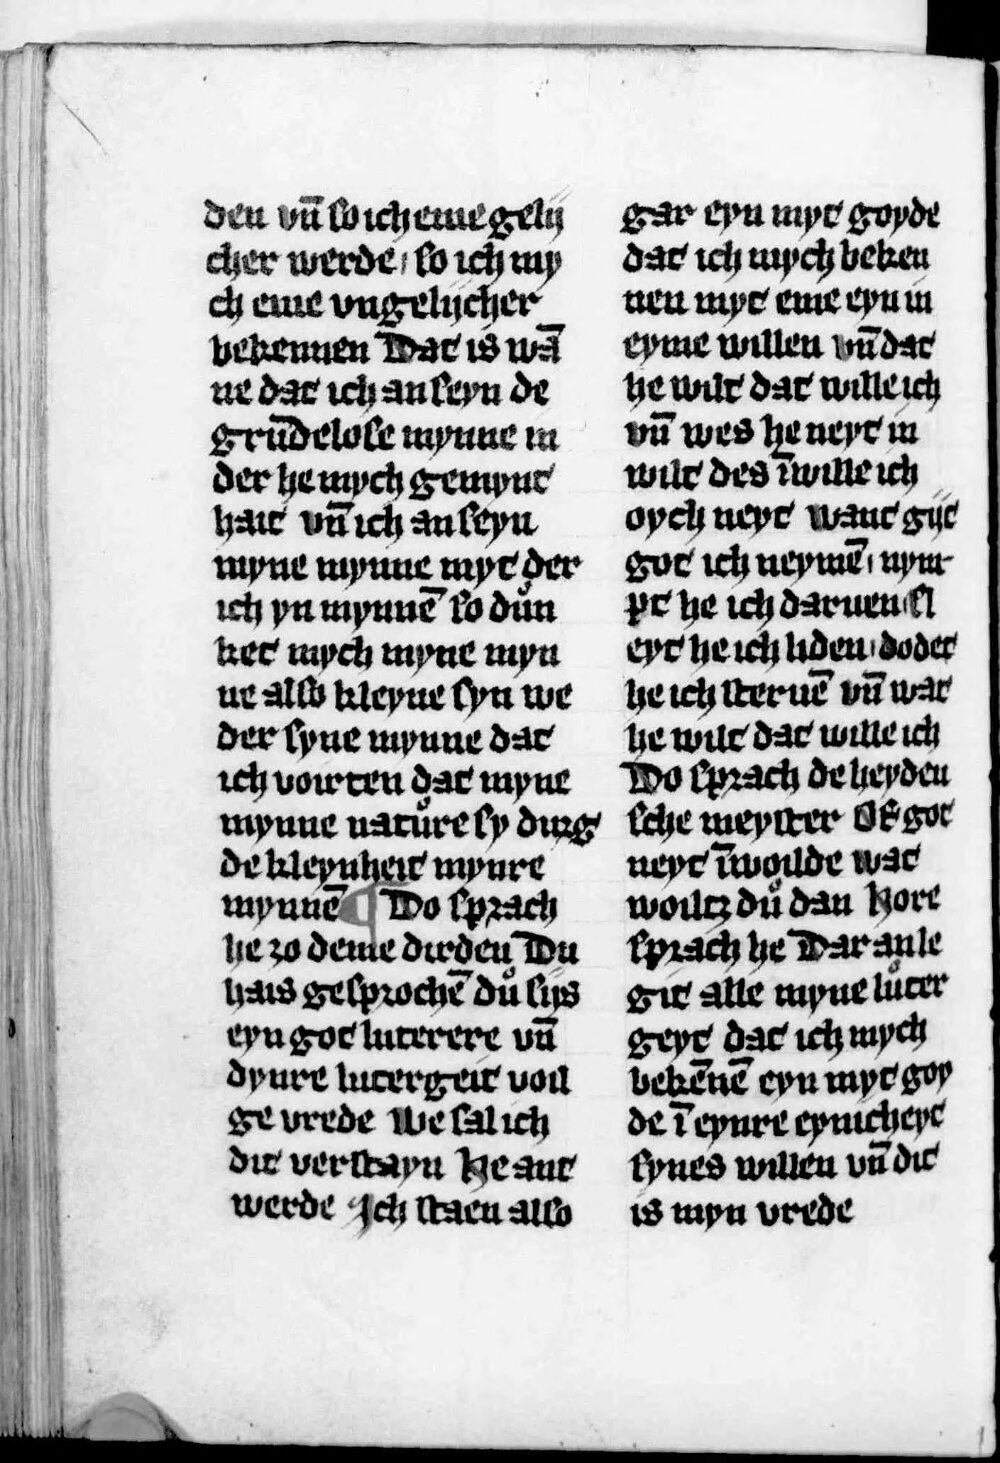 den vn̄ so ich eme gelij
cher werde, so ich my
ch eme vngelijcher
bekennen Dat is wā
ne dat ich an seyn de
grūdelose mynne in
der he mych gemynt
hait vn̄ ich an seyn
myne mynne myt der
ich yn mynnē so důn
ket mych myne myn
ne also kleyne syn we
der syne mynne dat
ich voirten dat myne
mynne natůre sy durg
de kleynheit mynre
mynnē ¶ Do sprach
he zo deme dirden Du
hais gesprochē dů sijs
eyn got luterere vn̄
dynre lutergeit voil
ge vrede We sal ich
dit verstayn He ant
werde Ich staen also
gar eyn myt goyde
dat ich mych beken
nen myt eme eyn in
eyme willen vn̄ dat
he wilt dat wille ich
vn̄ wes he neyt in
wilt des ī wille ich
oych neyt want gijt
got ich neymē, nym-
pt he ich daruen sl
eyt he ich liden, dodet
he ich steruē vn̄ wat
he wilt dat wille ich
Do sprach de heyden
sche meyster Of got
neyt ī woilde wat
woiltz dů dan Hore
sprach he Dar an le
git alle myne lůter
geyt dat ich mych
bekēnē eyn myt goy
de ī eynre eynicheyt
synes willen vn̄ dit
is myn vrede